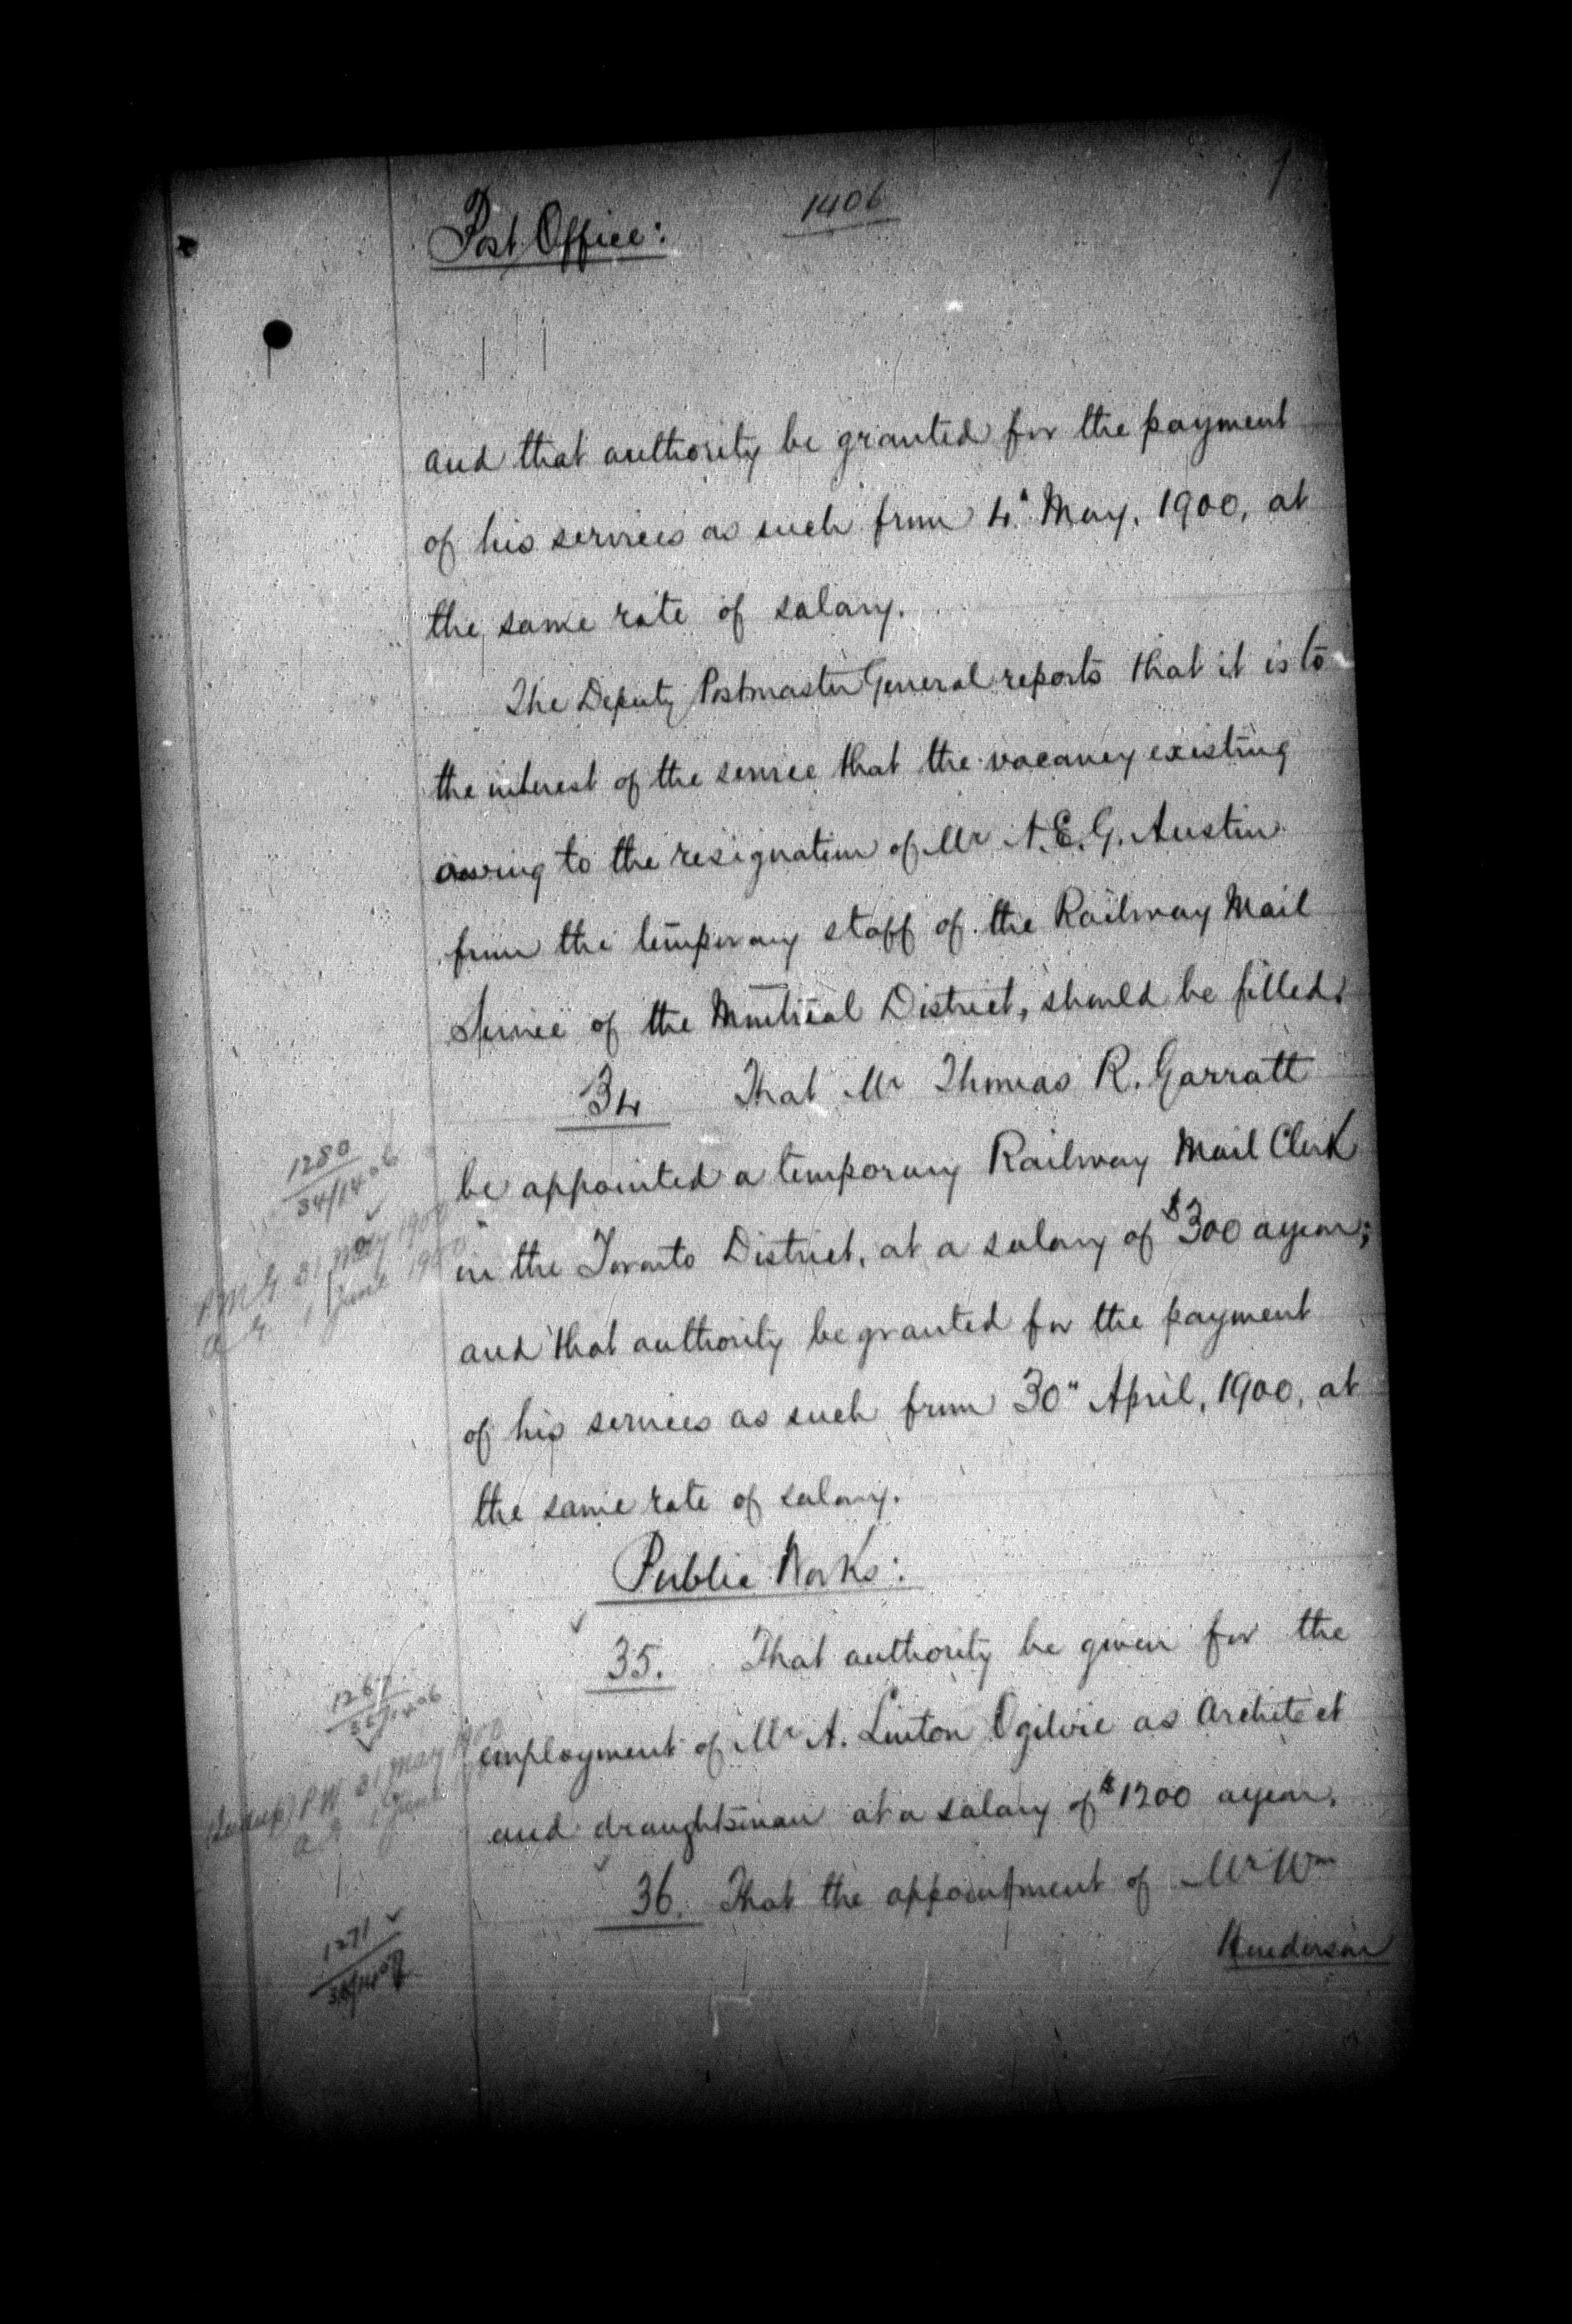 1406
Post Office:
and that authority be granted for the payment
of his services as such from 4" May, 1900, at
the same rate of salary.
The Deputy Postmaster General reports that it is to
the interest of the service that the vacancy existing
owing to the resignation of Mr A. E. G. Austin
from the temporary staff of the Railway Mail
Service of the Montreal District, should be filled.
34 That Mr Thomas R. Garratt
1280
34/1406
be appointed a temporary Railway Mail Clerk
P.M.G. 31 May 1900
in the Toronto District, at a salary of $300 a year;
a G. 1 June 1900
and that authority be granted for the payment
of his services as such from 30" April, 1900, at
the same rate of salary.
Public Works:
35. That authority be given for the
35/1406
employment of Mr A. Linton Ogilvie as Architect
P.W 31 May 1900
and draughtsman at a salary of $1200 a year.
a G 1 June
36. That the appointment of Mr Wm
1271
Henderson